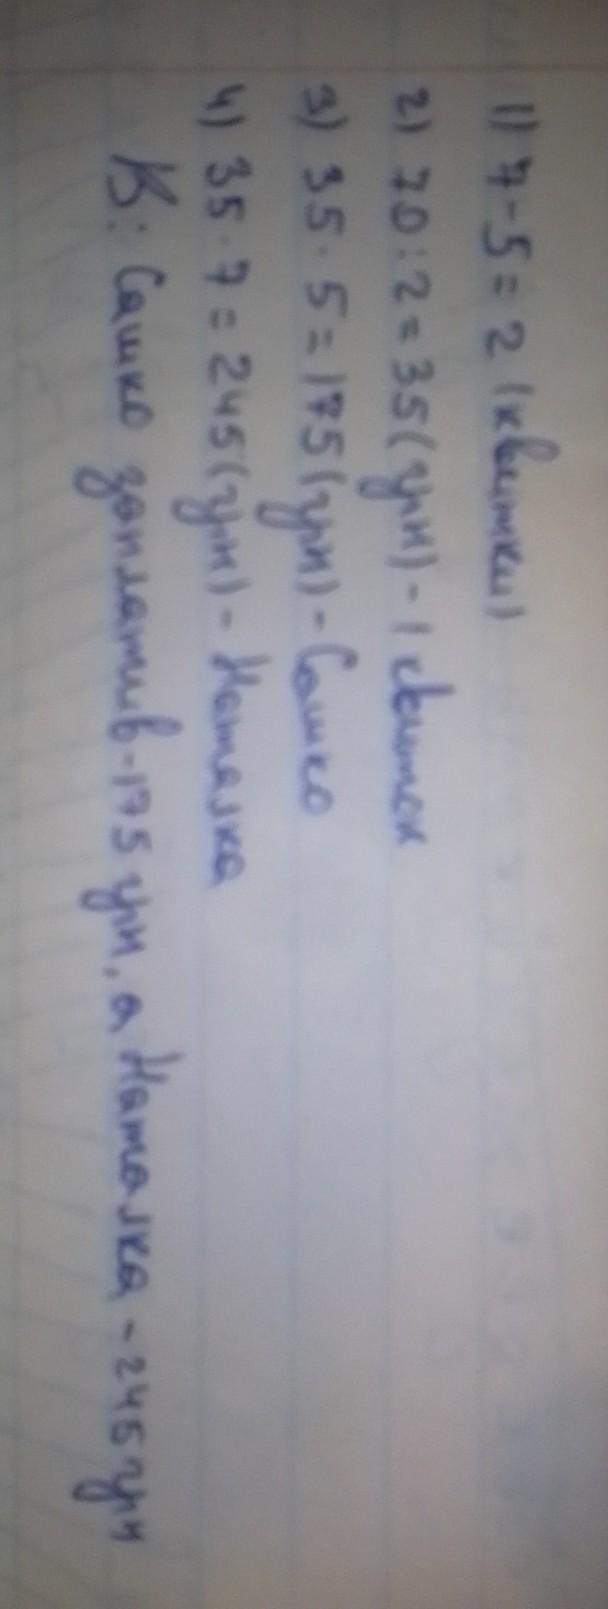 1) 7 - 5 = 2 (квитки)
2) 70 : 2 = 35 (грн) - 1 квиток
3) 35 · 5 = 175 (грн) - Сашко
4) 35 · 7 = 245 (грн) - Наталка
В: Сашко заплатив - 175 грн, а Наталка - 245 грн